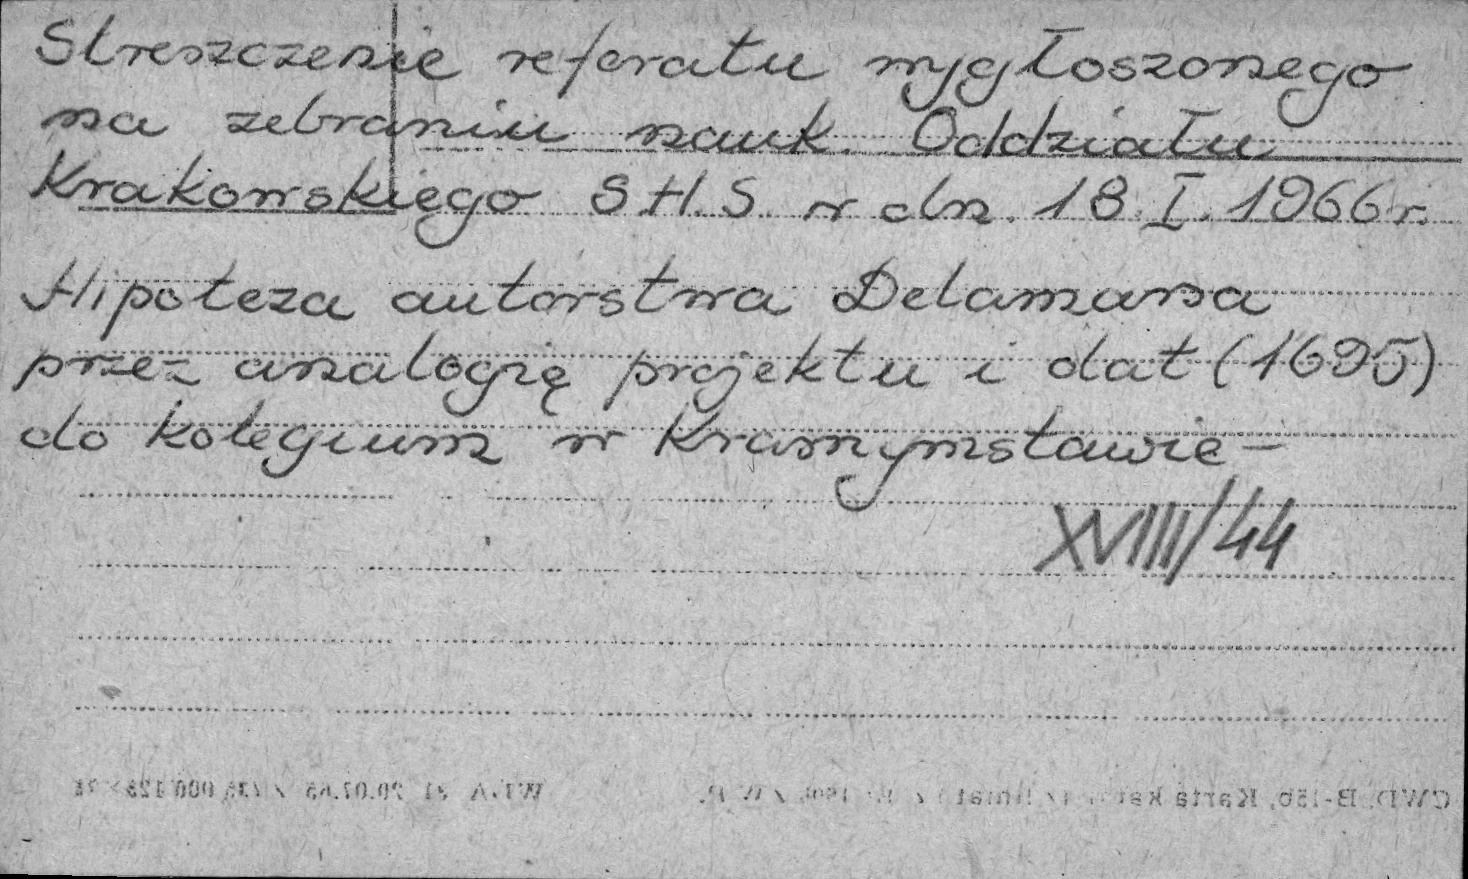 Streszczenie referatu wygłoszonego
na zebraniu nauk. Oddziału
Krakowskiego S.H.S. w dn. 18.I.1966 r.
Hipoteza autorstwa Delamarsa
przez analogię projektu i dat (1695)
do kolegium w Krasnymstawie –
XVIII/44
CWD, B-15b, Karta